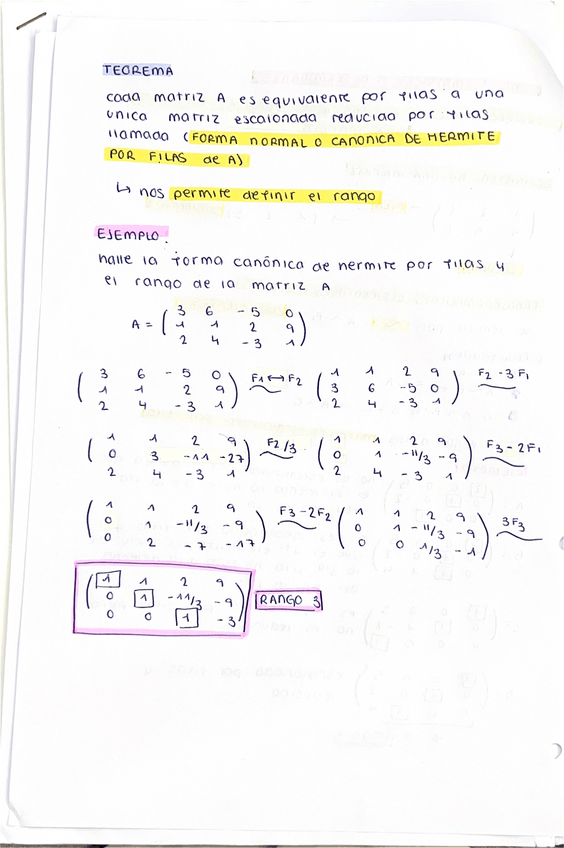 TEOREMA
cada matriz A es equivalente por filas a una
unica matriz escalonada reducida por filas
llamada (FORMA NORMAL O CANONICA DE HERMITE
POR FILAS de A)
↳ nos permite definir el rango
EJEMPLO:
halle la forma canónica de hermite por filas y
el rango de la matriz A
3 6 -5 0
A = ( 1 1 2 9 )
2 4 -3 1
3 6 -5 0 F1 ↔ F2 1 1 2 9 F2 -3F1
1 1 2 9 3 6 -5 0
2 4 -3 1 2 4 -3 1
1 1 2 9 F2/3 1 1 2 9 F3-2F1
0 3 -11 -27 0 1 -11/3 -9
2 4 -3 1 2 4 -3 1
1 1 2 9 F3-2F2 1 1 2 9 3F3
0 1 -11/3 -9 0 1 -11/3 -9
0 2 -7 -17 0 0 1/3 -1
1 1 2 9
0 1 -11/3 -9 RANGO 3
0 0 1 -3